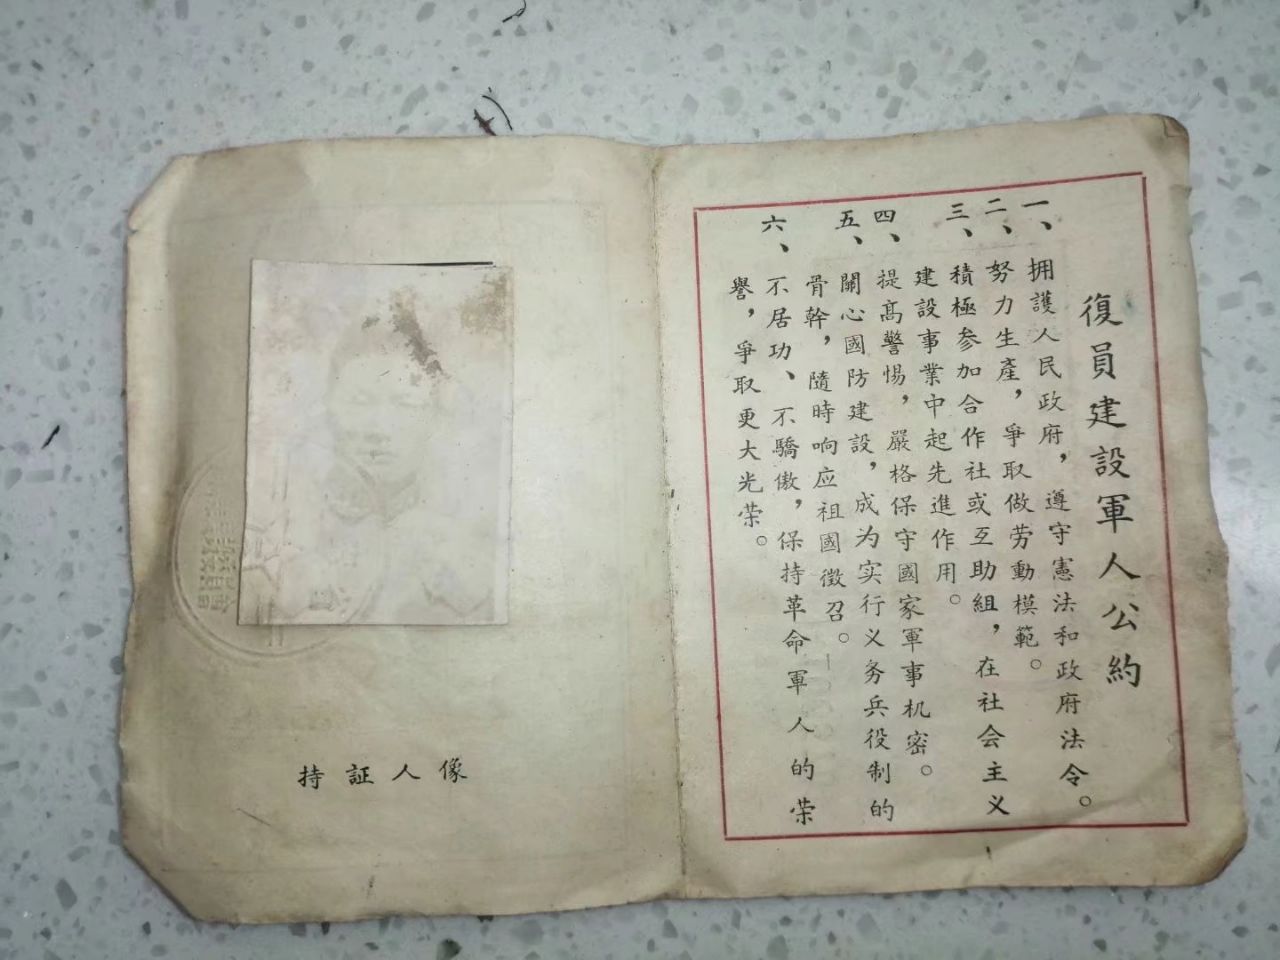 復員建設軍人公約
一、擁護人民政府，遵守憲法和政府法令。
二、努力生產，爭取做劳動模範。
三、積極参加合作社或互助組，在社会主义
建設事業中起先進作用。
四、提高警惕，嚴格保守國家軍事机密。
五、關心國防建設，成为实行义务兵役制的
骨幹，隨時响应祖國徵召。
六、不居功、不驕傲，保持革命軍人的荣
譽，爭取更大光荣。
持証人像